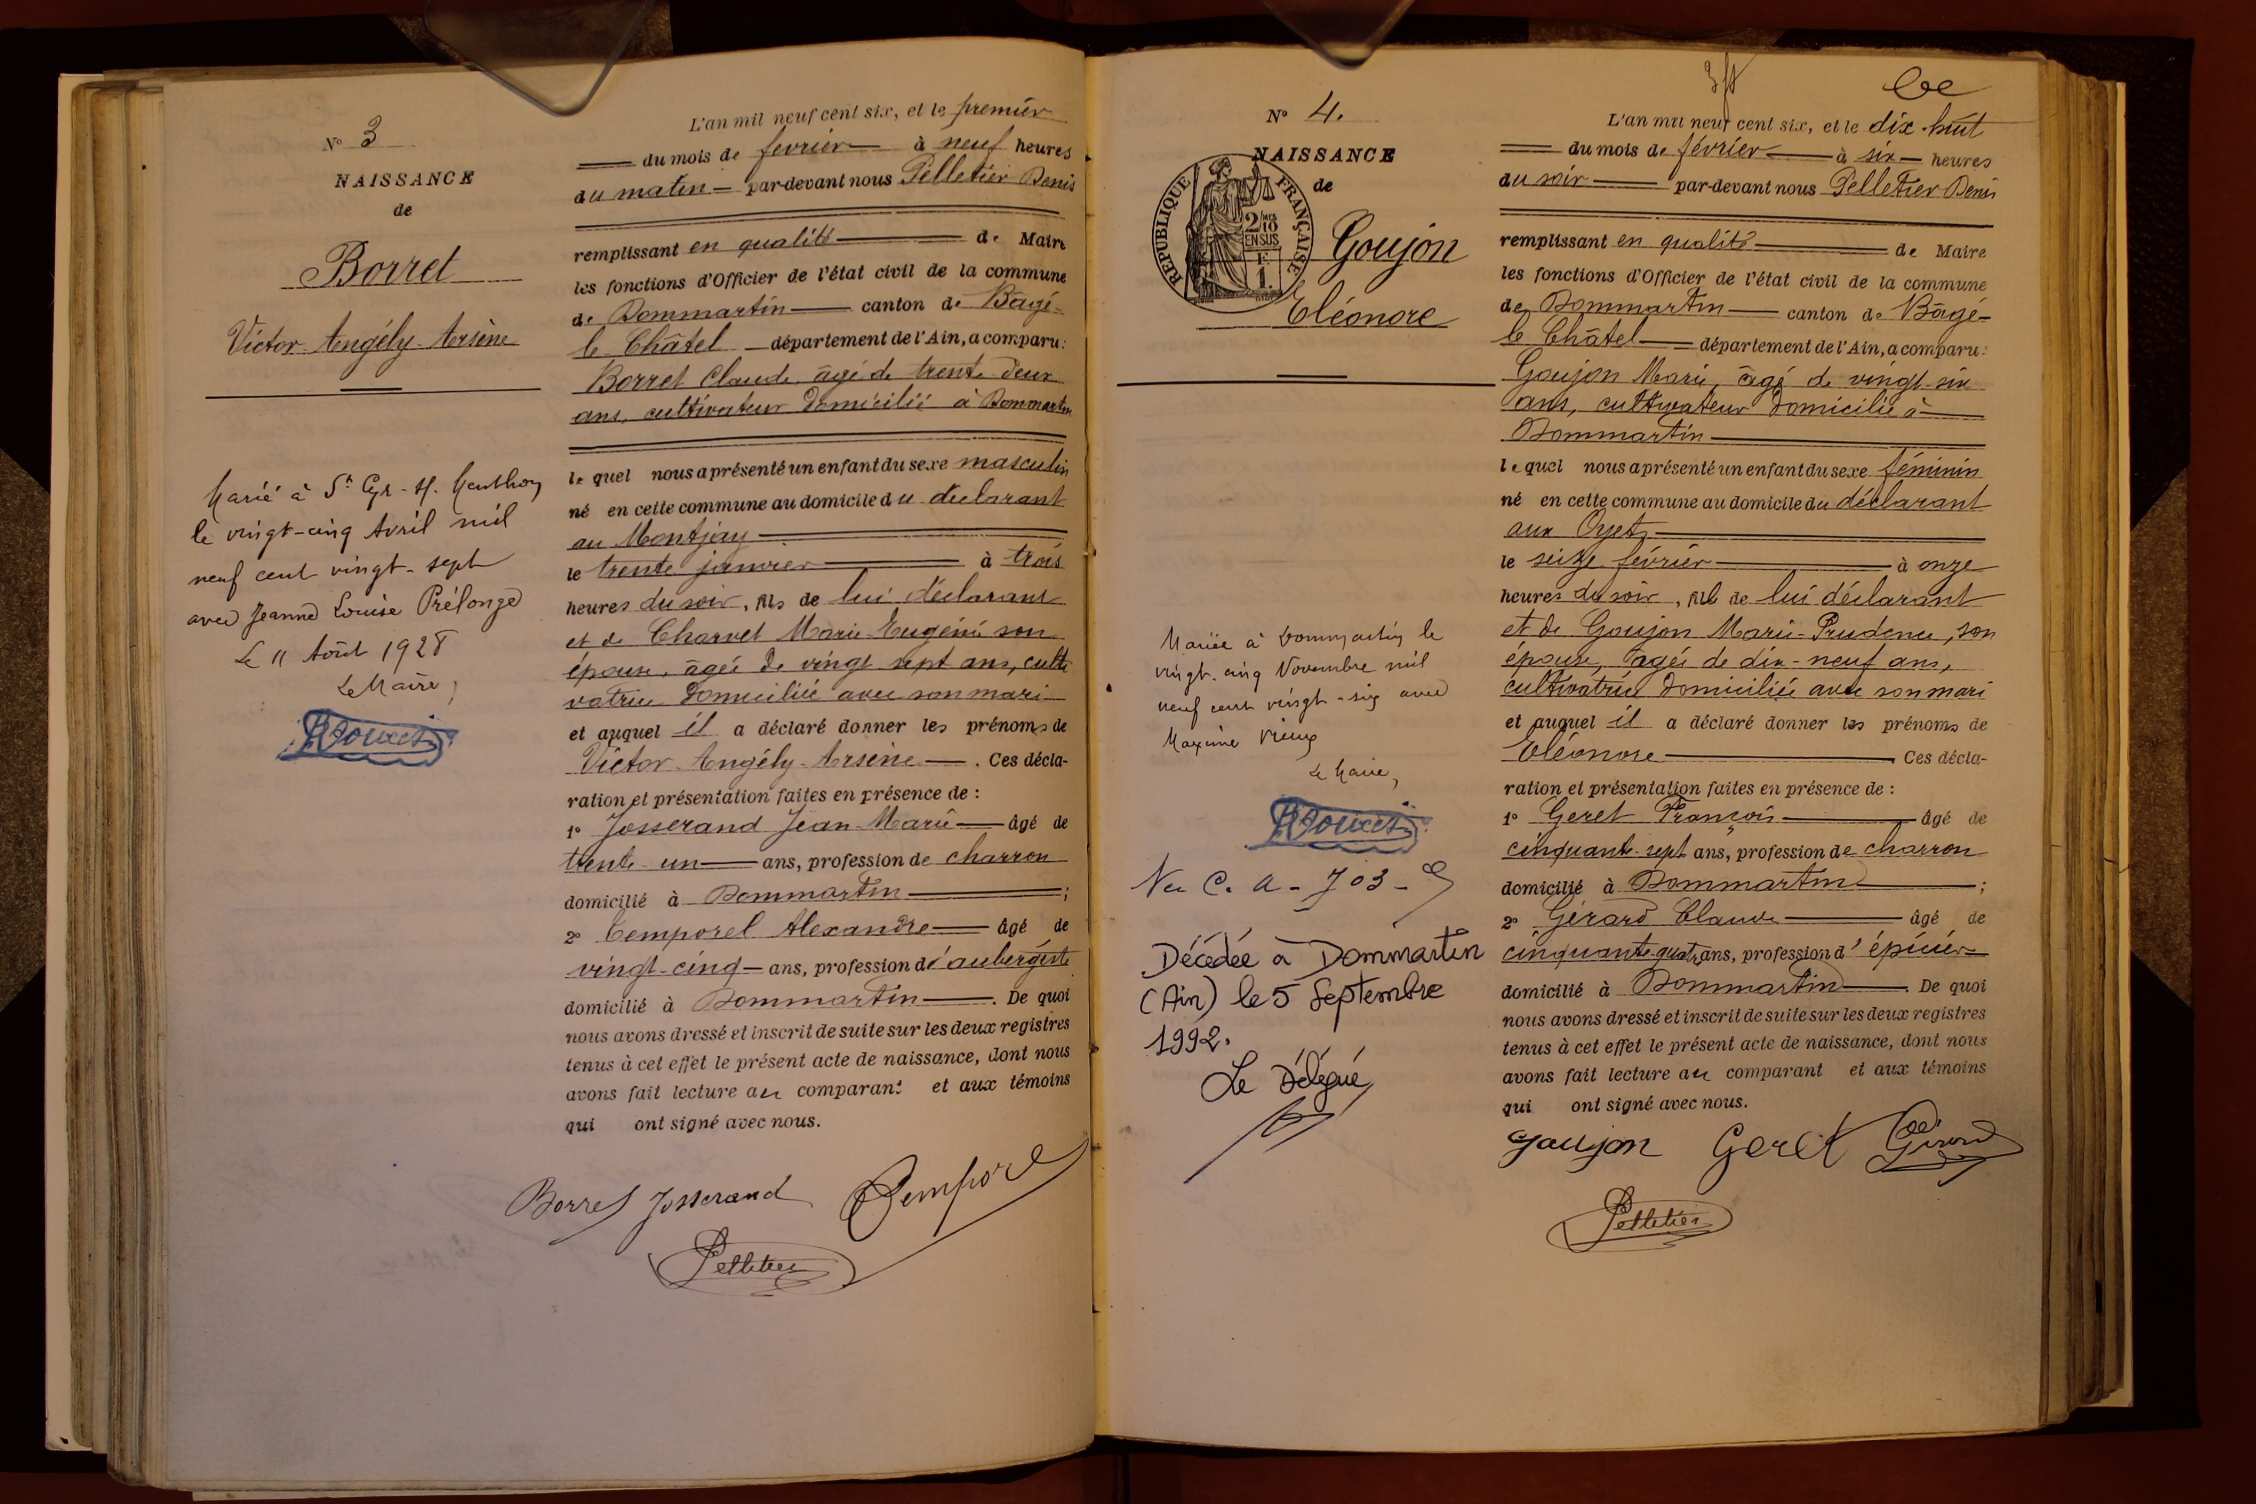 N° 3
NAISSANCE
de
Borret
Victor Angély Arsène
Marié à St Cyr-s. Menthon
le vingt-cinq Avril mil
neuf cent vingt-sept
avec Jeanne Louise Prélonge
Le 11 Août 1928
Le Maire,
L'an mil neuf cent six, et le premier
du mois de février à neuf heures
du matin par-devant nous Pelletier Denis
remplissant en qualité de Maire
les fonctions d'Officier de l'état civil de la commune
de Dommartin canton de Bâgé-
le Châtel département de l'Ain, a comparu :
Borret Claude âgé de trente deux
ans, cultivateur domicilié à Dommartin
lequel nous a présenté un enfant du sexe masculin
né en cette commune au domicile du déclarant
au Montjay
le trente janvier à trois
heures du soir, fils de lui déclarant
et de Charvet Marie Eugénie son
épouse, âgée de vingt sept ans, culti
vatrice domiciliée avec son mari
et auquel il a déclaré donner les prénoms de
Victor Angély Arsène. Ces décla-
ration et présentation faites en présence de :
1° Josserand Jean Marie âgé de
trente un ans, profession de charron
domicilié à Dommartin ;
2° Temporel Alexandre âgé de
vingt-cinq ans, profession d'aubergiste
domicilié à Dommartin. De quoi
nous avons dressé et inscrit de suite sur les deux registres
tenus à cet effet le présent acte de naissance, dont nous
avons fait lecture au comparant et aux témoins
qui ont signé avec nous.
Borret Josserand Temporel
Pelletier
N° 4.
NAISSANCE
de
REPUBLIQUE FRANÇAISE
2/10
EN SUS
F.
1.
Goujon
Eléonore
Mariée à Dommartin le
vingt-cinq Novembre mil
neuf cent vingt-six avec
Maxime Vieux
Le Maire,
C. A - 703 -
Décédée à Dommartin
(Ain) le 5 Septembre
1992.
Le Délégué,
L'an mil neuf cent six, et le dix-huit
du mois de février à six heures
du soir par-devant nous Pelletier Denis
remplissant en qualité de Maire
les fonctions d'Officier de l'état civil de la commune
de Dommartin canton de Bâgé-
le Châtel département de l'Ain, a comparu :
Goujon Marie, âgé de vingt-six
ans, cultivateur domicilié à
Dommartin
lequel nous a présenté un enfant du sexe féminin
né en cette commune au domicile du déclarant
aux
le seize février à onze
heures du soir, fille de lui déclarant
et de Goujon Marie-Prudence, son
épouse, âgée de dix-neuf ans,
cultivatrice domiciliée avec son mari
et auquel il a déclaré donner les prénoms de
Eléonore Ces décla-
ration et présentation faites en présence de :
1° Geret François âgé de
cinquante-sept ans, profession de charron
domicilié à Dommartin ;
2° Gérard Claude âgé de
cinquante quatre ans, profession d'épicier
domicilié à Dommartin. De quoi
nous avons dressé et inscrit de suite sur les deux registres
tenus à cet effet le présent acte de naissance, dont nous
avons fait lecture au comparant et aux témoins
qui ont signé avec nous.
Goujon Geret Gérard
Pelletier